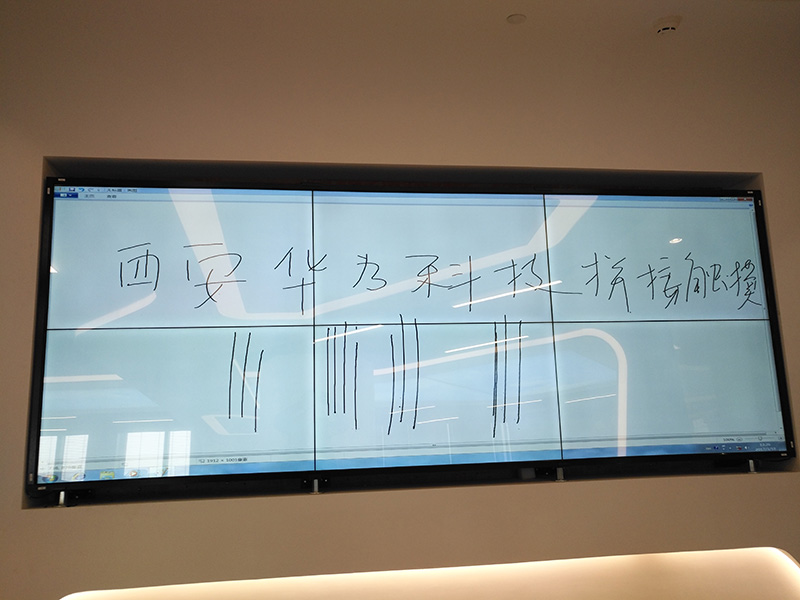 西安华为科技拼接触摸